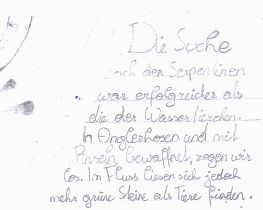 Die Suche
nach den Serpentinen
war erfolgreicher als
die der Wassertierchen.
In Anglerhosen und mit
Pinseln bewaffnet, zogen wir
los. Im Fluss liesen sich jedoch
mehr grüne Steine als Tiere finden.